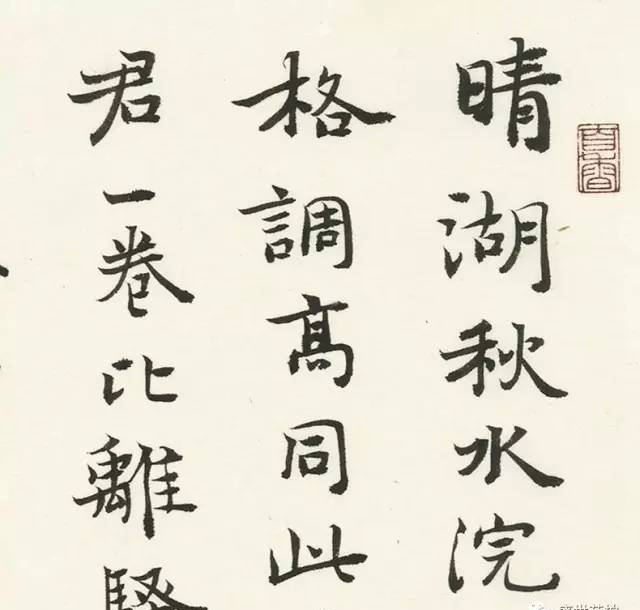 晴湖秋水浣
格調高同此
君一卷比離騷